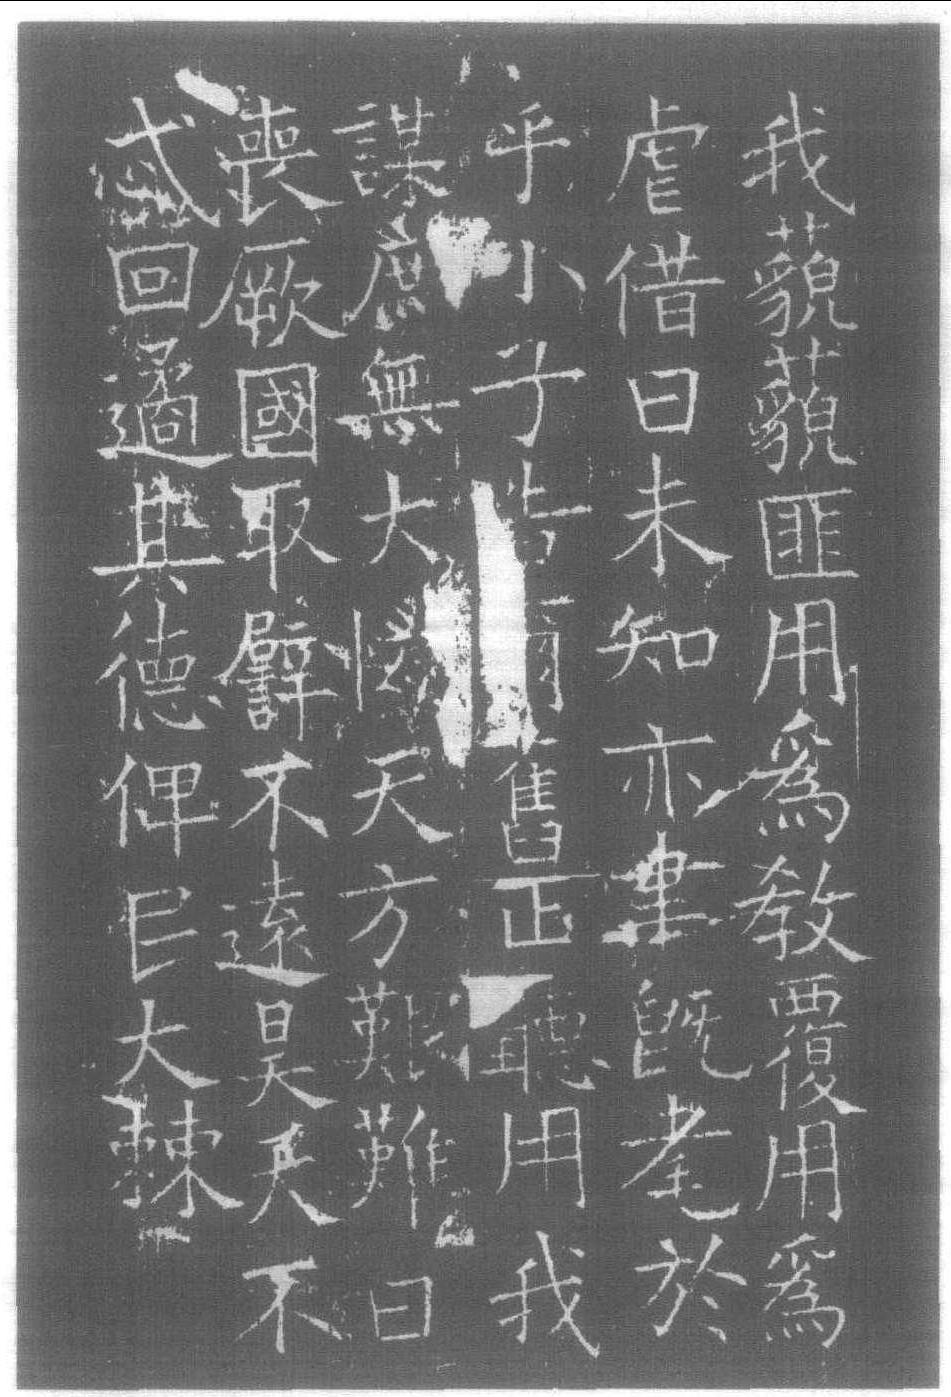 我藐藐匪用爲教覆用爲
虐借曰未知亦聿既耄於
乎小子告爾舊止聽用我
謀庶無大悔天方艱難曰
喪厥國取譬不遠昊天不
忒回遹其德俾民大棘